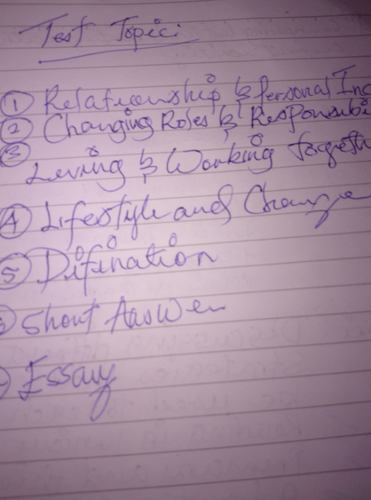 Test Topic:
① Relationship & Personal Inc
② Changing Roles & Responsibi
③
Living & Working Togeth
④ Lifestyle and Change
⑤ Difination
Short Answer
Essay